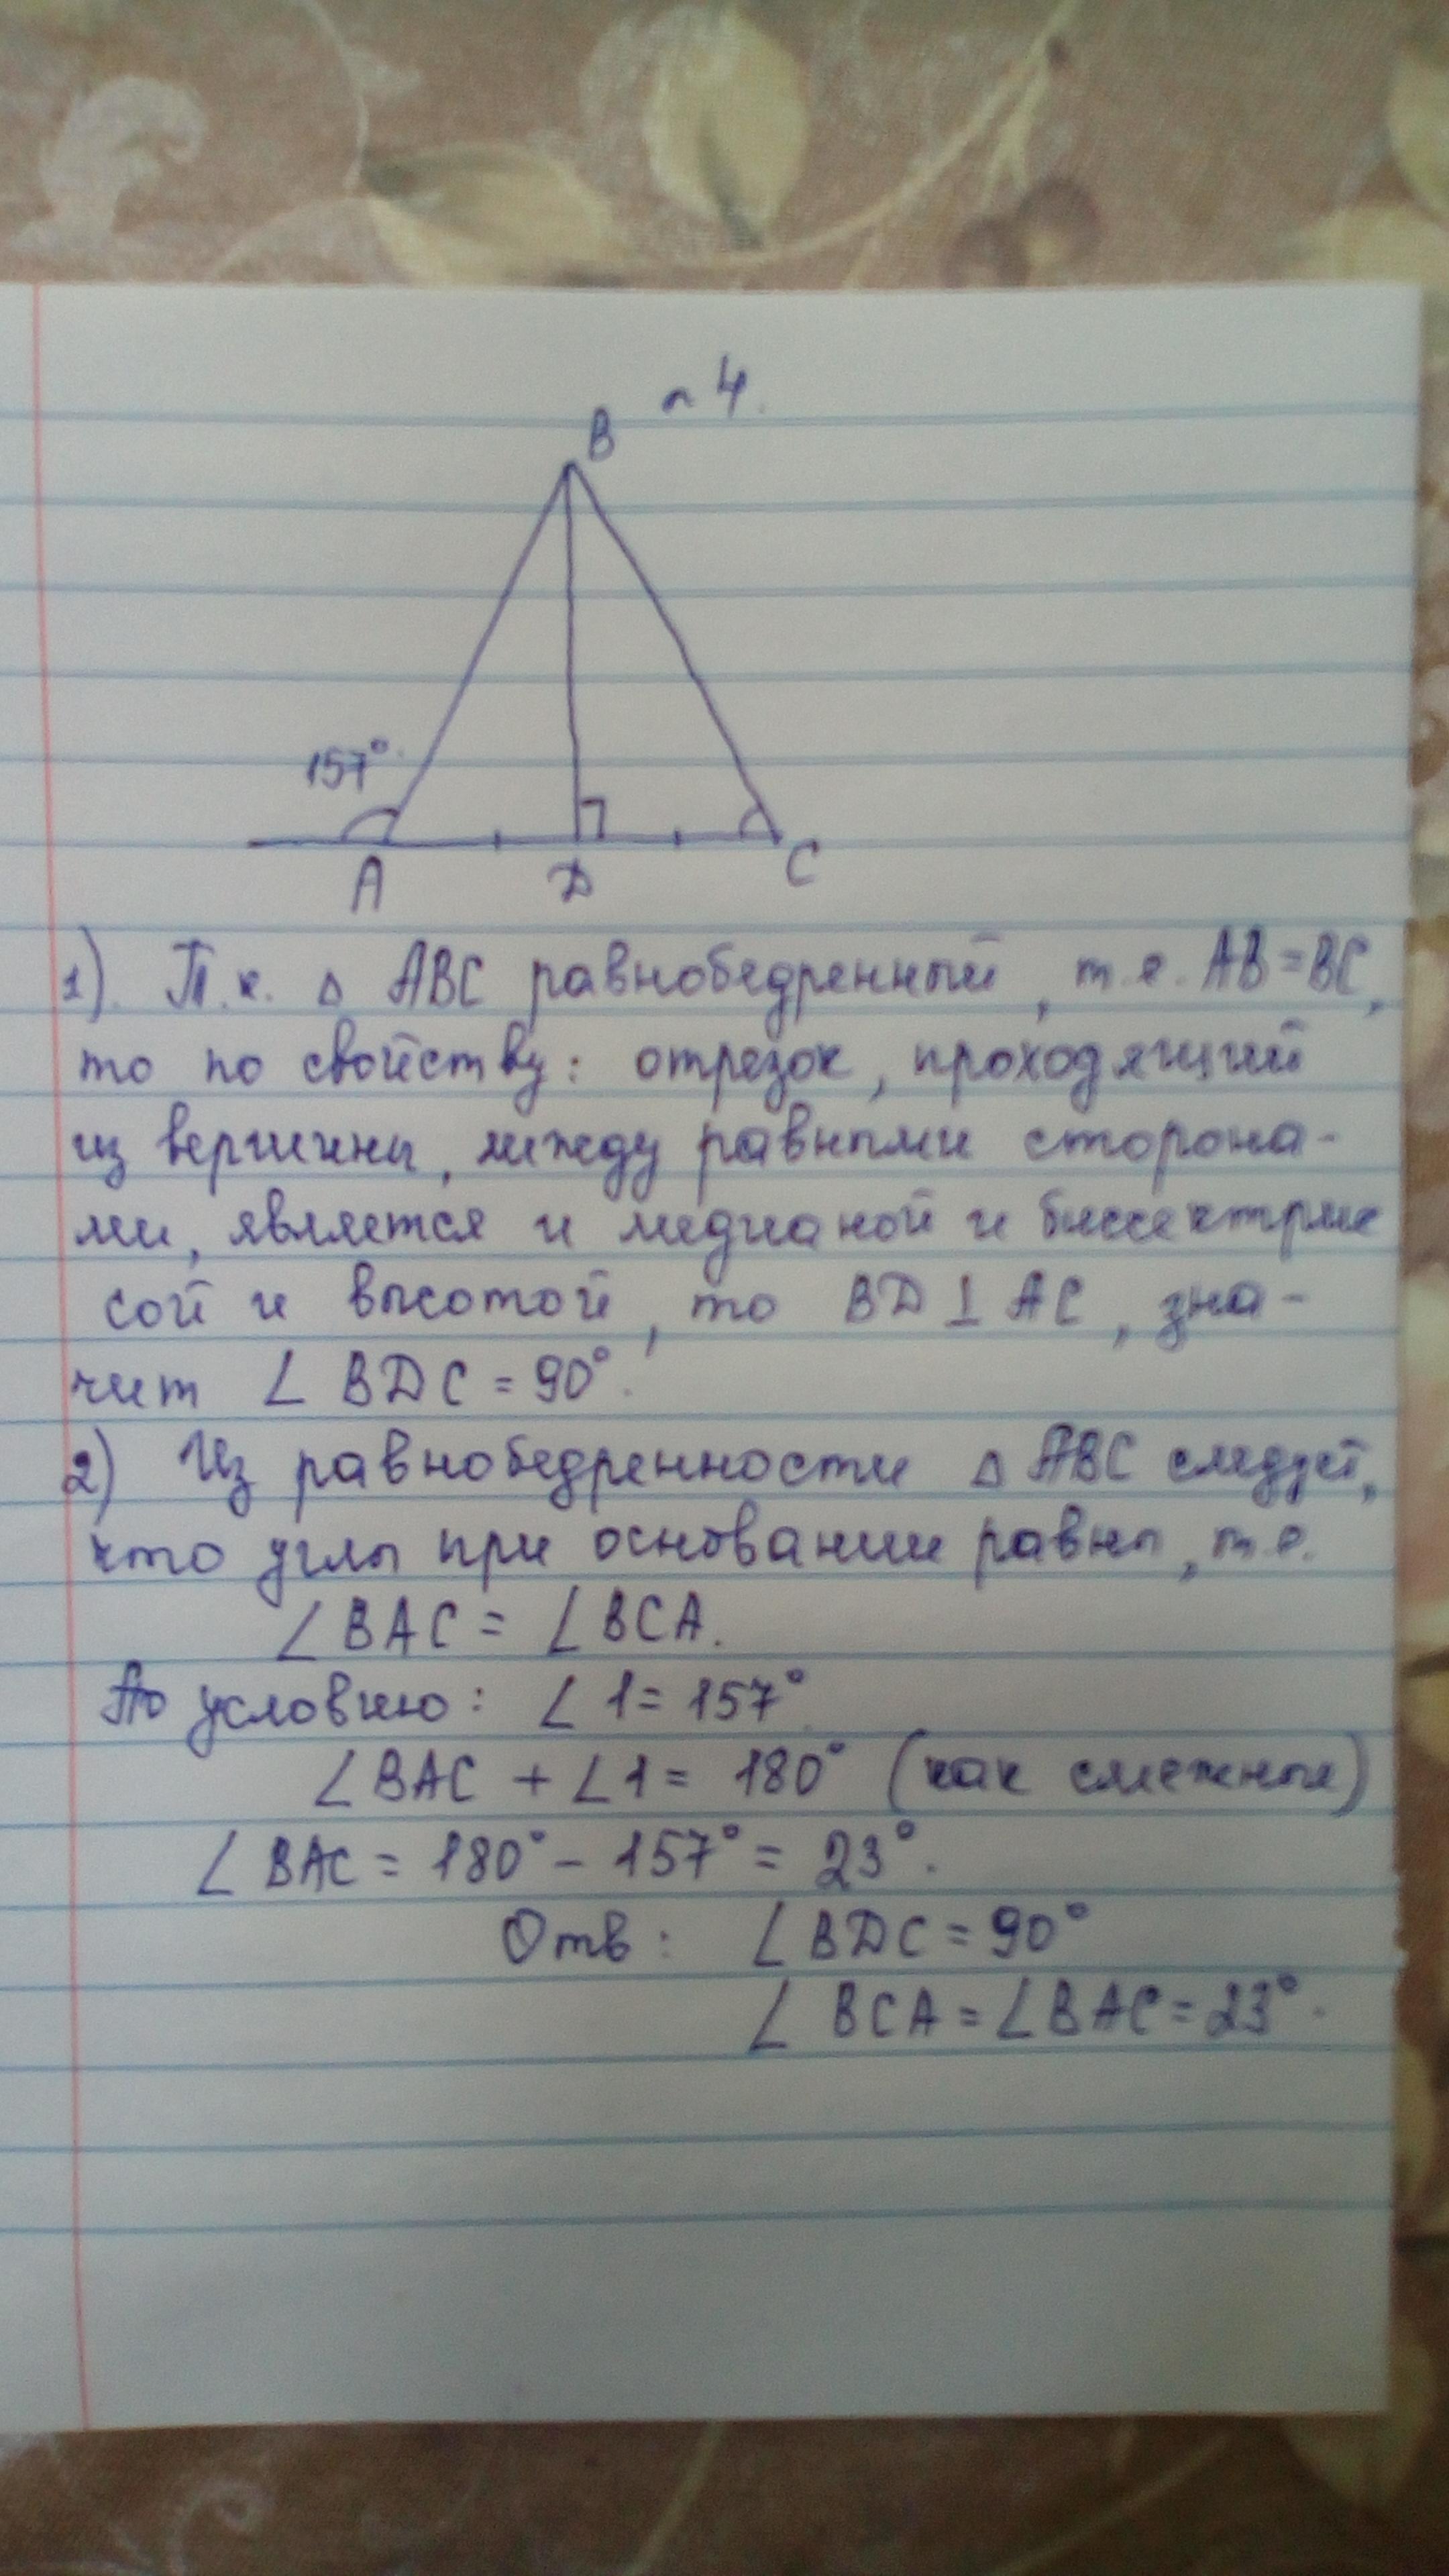 ~ 4.
B
157°
A
D
C
1). Т.к. △ ABC равнобедренный, т.е. AB=BC,
то по свойству: отрезок, проходящий
из вершины, между равными сторона-
ми, является и медианой и биссектри
сой и высотой, то BD⊥AC, зна-
чит ∠ BDC = 90°.
2) Из равнобедренности △ ABC следует,
что углы при основании равны, т.е.
∠ BAC = ∠ BCA.
По условию: ∠ 1 = 157°
∠BAC + ∠1 = 180° (как смежные)
∠ BAC = 180° - 157° = 23°.
Отв: ∠ BDC = 90°
∠ BCA = ∠BAC = 23°.